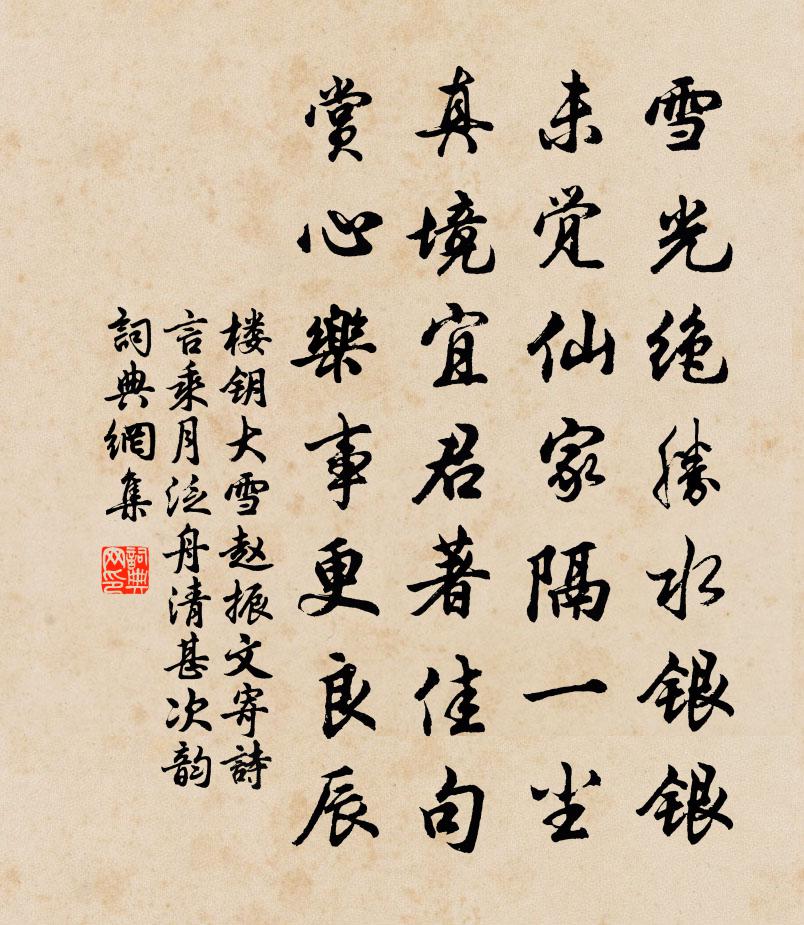 雪光绝勝水银银
未觉仙家隔一尘
真境宜君著佳句
赏心樂事更良辰
楼钥大雪赵振文寄詩
言乘月泛舟清甚次韵
詞典網集
詞典网印